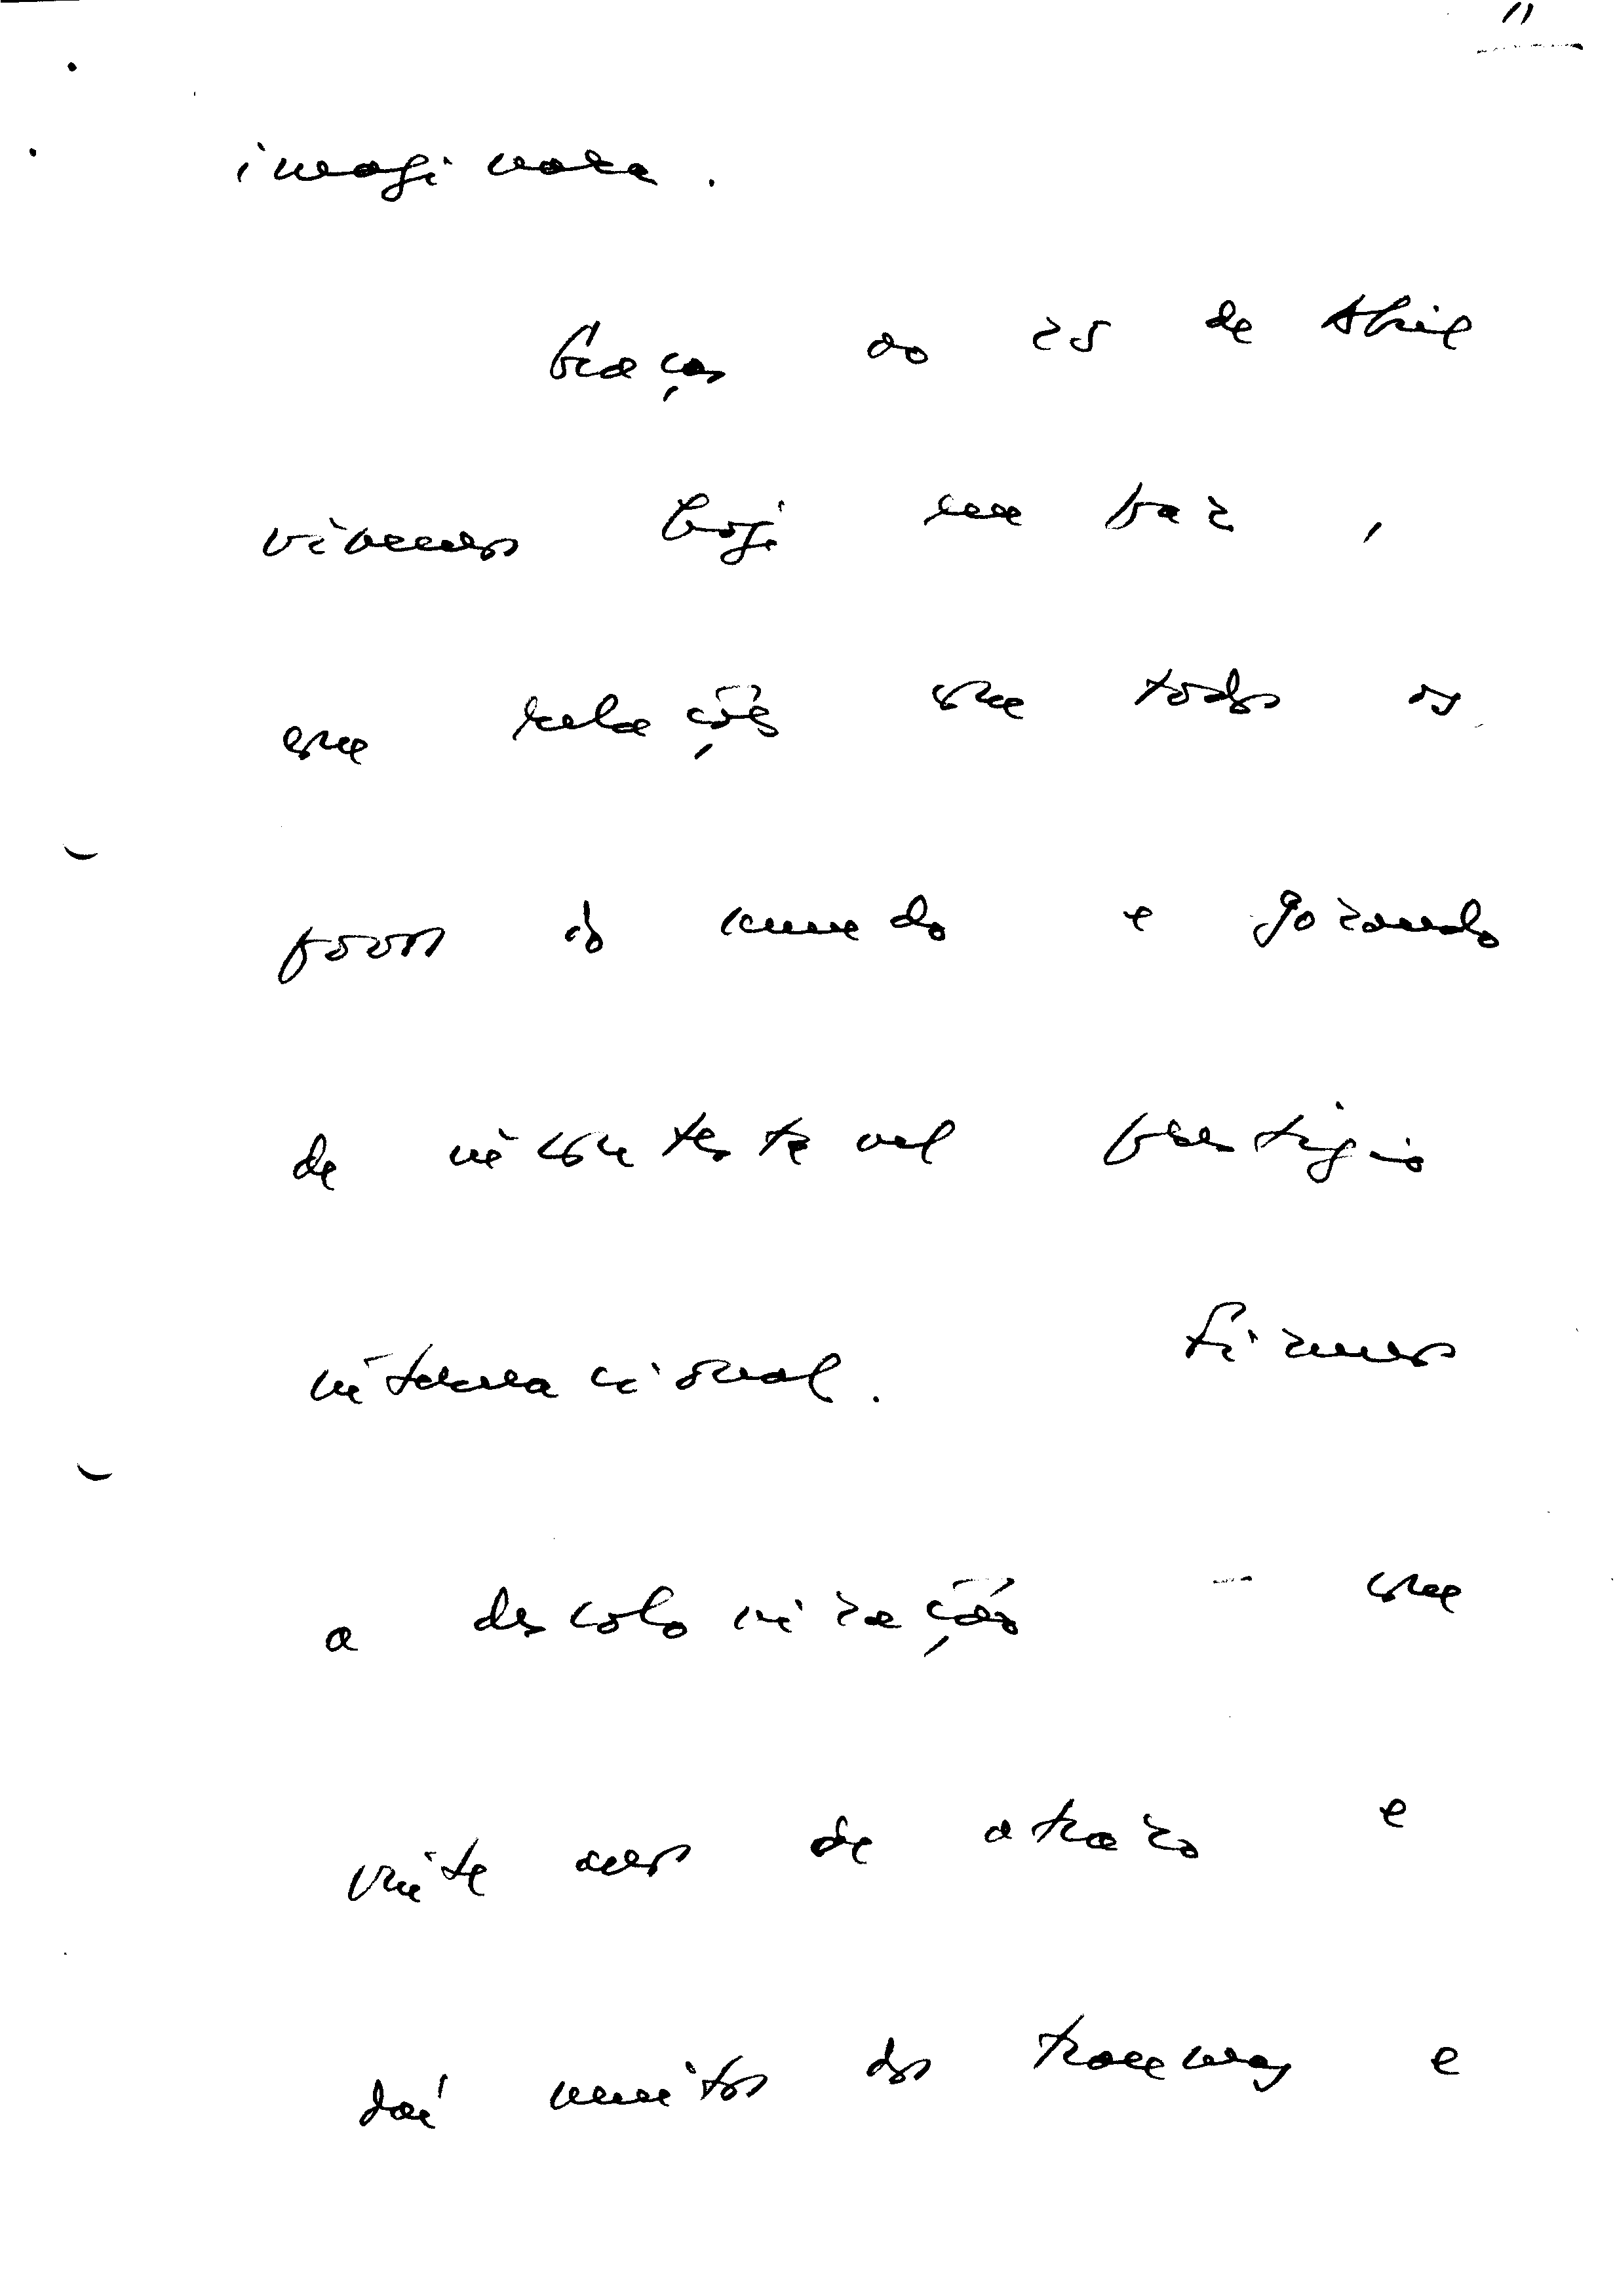 11
imaginara.
Graças ao 25 de Abril
vivemos hoje em paz,
com relações com todos os
povos do mundo e gozando
de incontestável prestígio
internacional. Fizemos
a descolonização - com
vinte anos de atrazo e
daí muitos dos traumas e